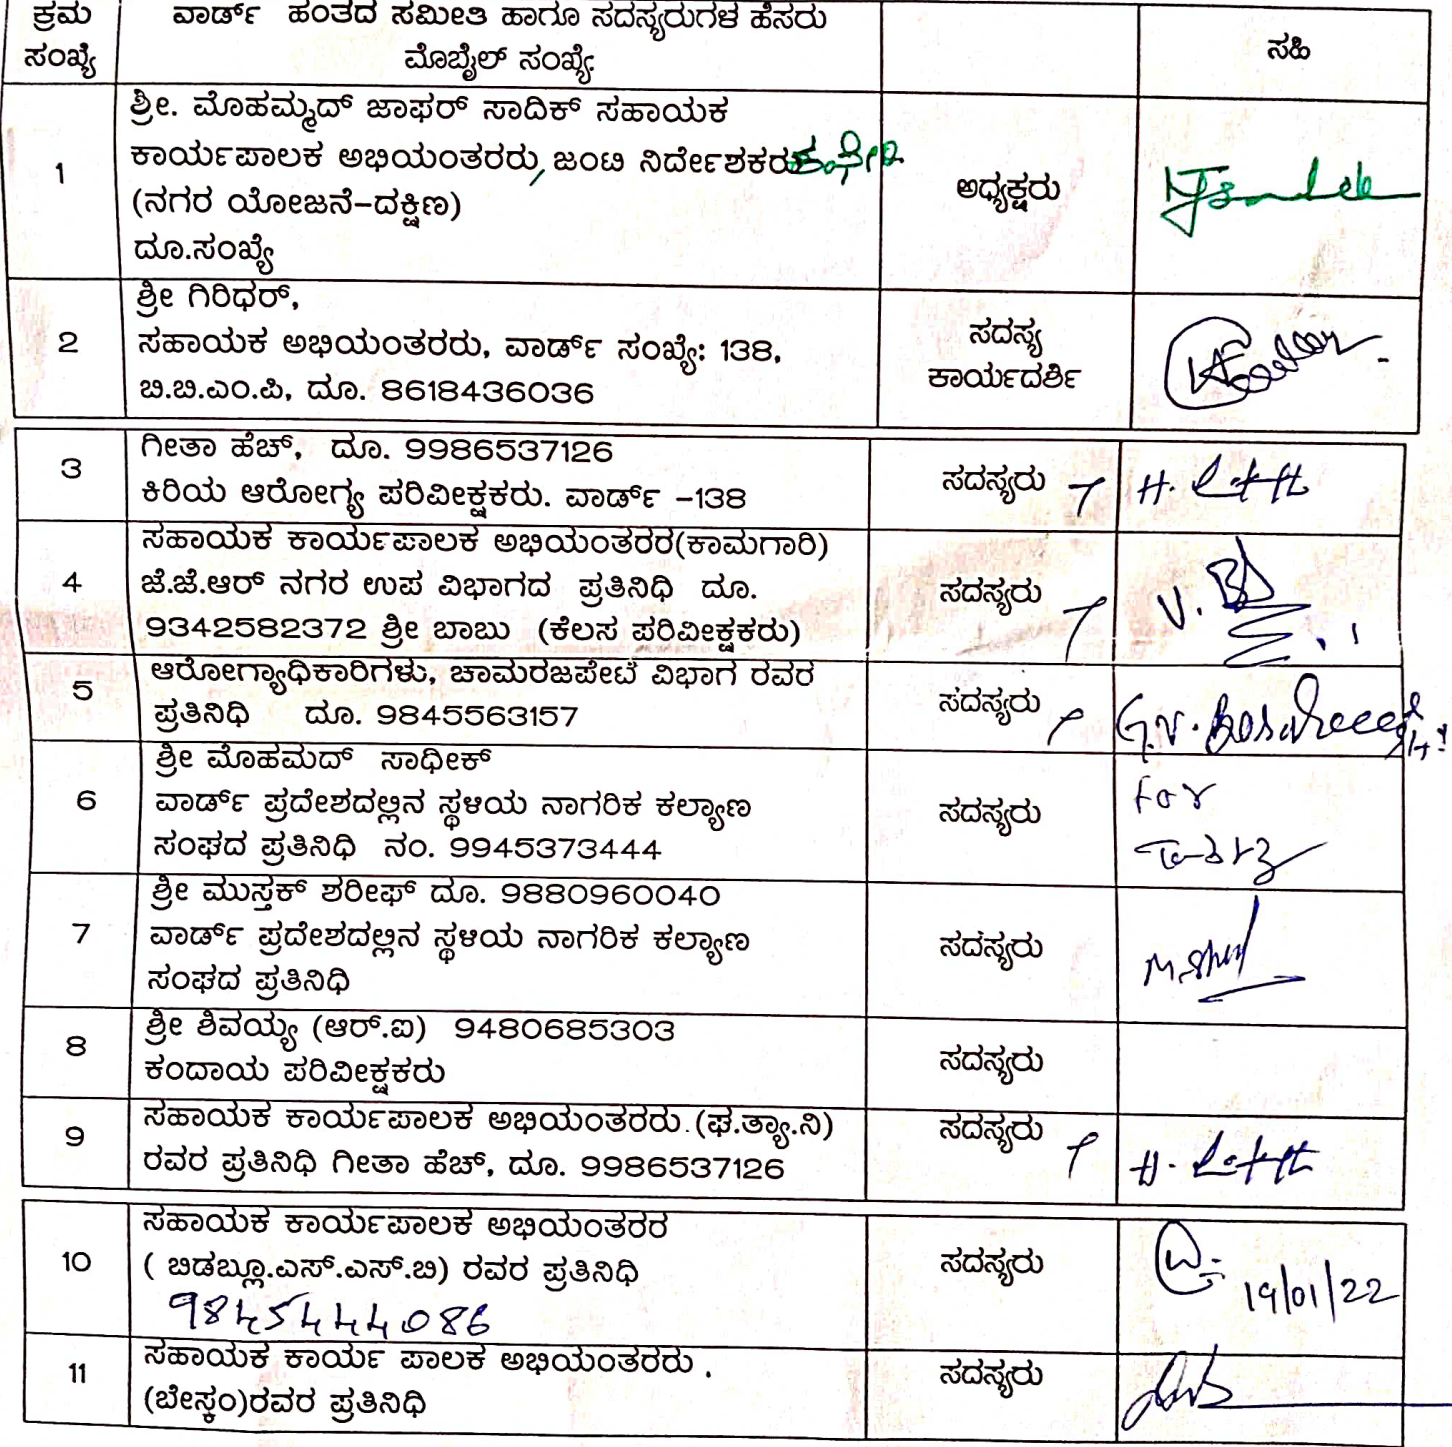 ಕ್ರಮ
ಸಂಖ್ಯೆ
ವಾರ್ಡ್ ಹಂತದ ಸಮೀತಿ ಹಾಗೂ ಸದಸ್ಯರುಗಳ ಹೆಸರು
ಮೊಬೈಲ್ ಸಂಖ್ಯೆ
ಸಹಿ
1
ಶ್ರೀ. ಮೊಹಮ್ಮದ್ ಜಾಫರ್ ಸಾದಿಕ್ ಸಹಾಯಕ
ಕಾರ್ಯಪಾಲಕ ಅಭಿಯಂತರರು, ಜಂಟಿ ನಿರ್ದೇಶಕರು
(ನಗರ ಯೋಜನೆ-ದಕ್ಷಿಣ)
ದೂ.ಸಂಖ್ಯೆ
ಅಧ್ಯಕ್ಷರು
2
ಶ್ರೀ ಗಿರಿಧರ್,
ಸಹಾಯಕ ಅಭಿಯಂತರರು, ವಾರ್ಡ್ ಸಂಖ್ಯೆ: 138,
ಬಿ.ಬಿ.ಎಂ.ಪಿ, ದೂ. 8618436036
ಸದಸ್ಯ
ಕಾರ್ಯದರ್ಶಿ
3
ಗೀತಾ ಹೆಚ್, ದೂ. 9986537126
ಕಿರಿಯ ಆರೋಗ್ಯ ಪರಿವೀಕ್ಷಕರು. ವಾರ್ಡ್ -138
ಸದಸ್ಯರು
4
ಸಹಾಯಕ ಕಾರ್ಯಪಾಲಕ ಅಭಿಯಂತರರ(ಕಾಮಗಾರಿ)
ಜೆ.ಜೆ.ಆರ್ ನಗರ ಉಪ ವಿಭಾಗದ ಪ್ರತಿನಿಧಿ ದೂ.
9342582372 ಶ್ರೀ ಬಾಬು (ಕೆಲಸ ಪರಿವೀಕ್ಷಕರು)
ಸದಸ್ಯರು
5
ಆರೋಗ್ಯಾಧಿಕಾರಿಗಳು, ಚಾಮರಜಪೇಟೆ ವಿಭಾಗ ರವರ
ಪ್ರತಿನಿಧಿ ದೂ. 9845563157
ಸದಸ್ಯರು
6
ಶ್ರೀ ಮೊಹಮದ್ ಸಾಧೀಕ್
ವಾರ್ಡ್ ಪ್ರದೇಶದಲ್ಲಿನ ಸ್ಥಳಿಯ ನಾಗರಿಕ ಕಲ್ಯಾಣ
ಸಂಘದ ಪ್ರತಿನಿಧಿ ನಂ. 9945373444
ಸದಸ್ಯರು
For
7
ಶ್ರೀ ಮುಸ್ತಕ್ ಶರೀಫ್ ದೂ. 9880960040
ವಾರ್ಡ್ ಪ್ರದೇಶದಲ್ಲಿನ ಸ್ಥಳಿಯ ನಾಗರಿಕ ಕಲ್ಯಾಣ
ಸಂಘದ ಪ್ರತಿನಿಧಿ
ಸದಸ್ಯರು
8
ಶ್ರೀ ಶಿವಯ್ಯ (ಆರ್.ಐ) 9480685303
ಕಂದಾಯ ಪರಿವೀಕ್ಷಕರು
ಸದಸ್ಯರು
9
ಸಹಾಯಕ ಕಾರ್ಯಪಾಲಕ ಅಭಿಯಂತರರು.(ಘ.ತ್ಯಾ.ನಿ)
ರವರ ಪ್ರತಿನಿಧಿ ಗೀತಾ ಹೆಚ್, ದೂ. 9986537126
ಸದಸ್ಯರು
10
ಸಹಾಯಕ ಕಾರ್ಯಪಾಲಕ ಅಭಿಯಂತರರ
( ಬಿಡಬ್ಲೂ.ಎಸ್.ಎಸ್.ಬಿ) ರವರ ಪ್ರತಿನಿಧಿ
9845444086
ಸದಸ್ಯರು
19/01/22
11
ಸಹಾಯಕ ಕಾರ್ಯ ಪಾಲಕ ಅಭಿಯಂತರರು .
(ಬೇಸ್ಕಂ)ರವರ ಪ್ರತಿನಿಧಿ
ಸದಸ್ಯರು